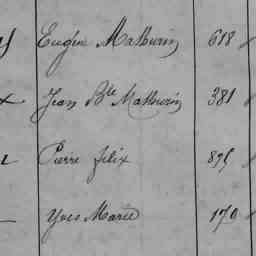 Eugène Mathurin 618
Jean Bte Mathurin 381
Pierre félix
Yves Marie 170